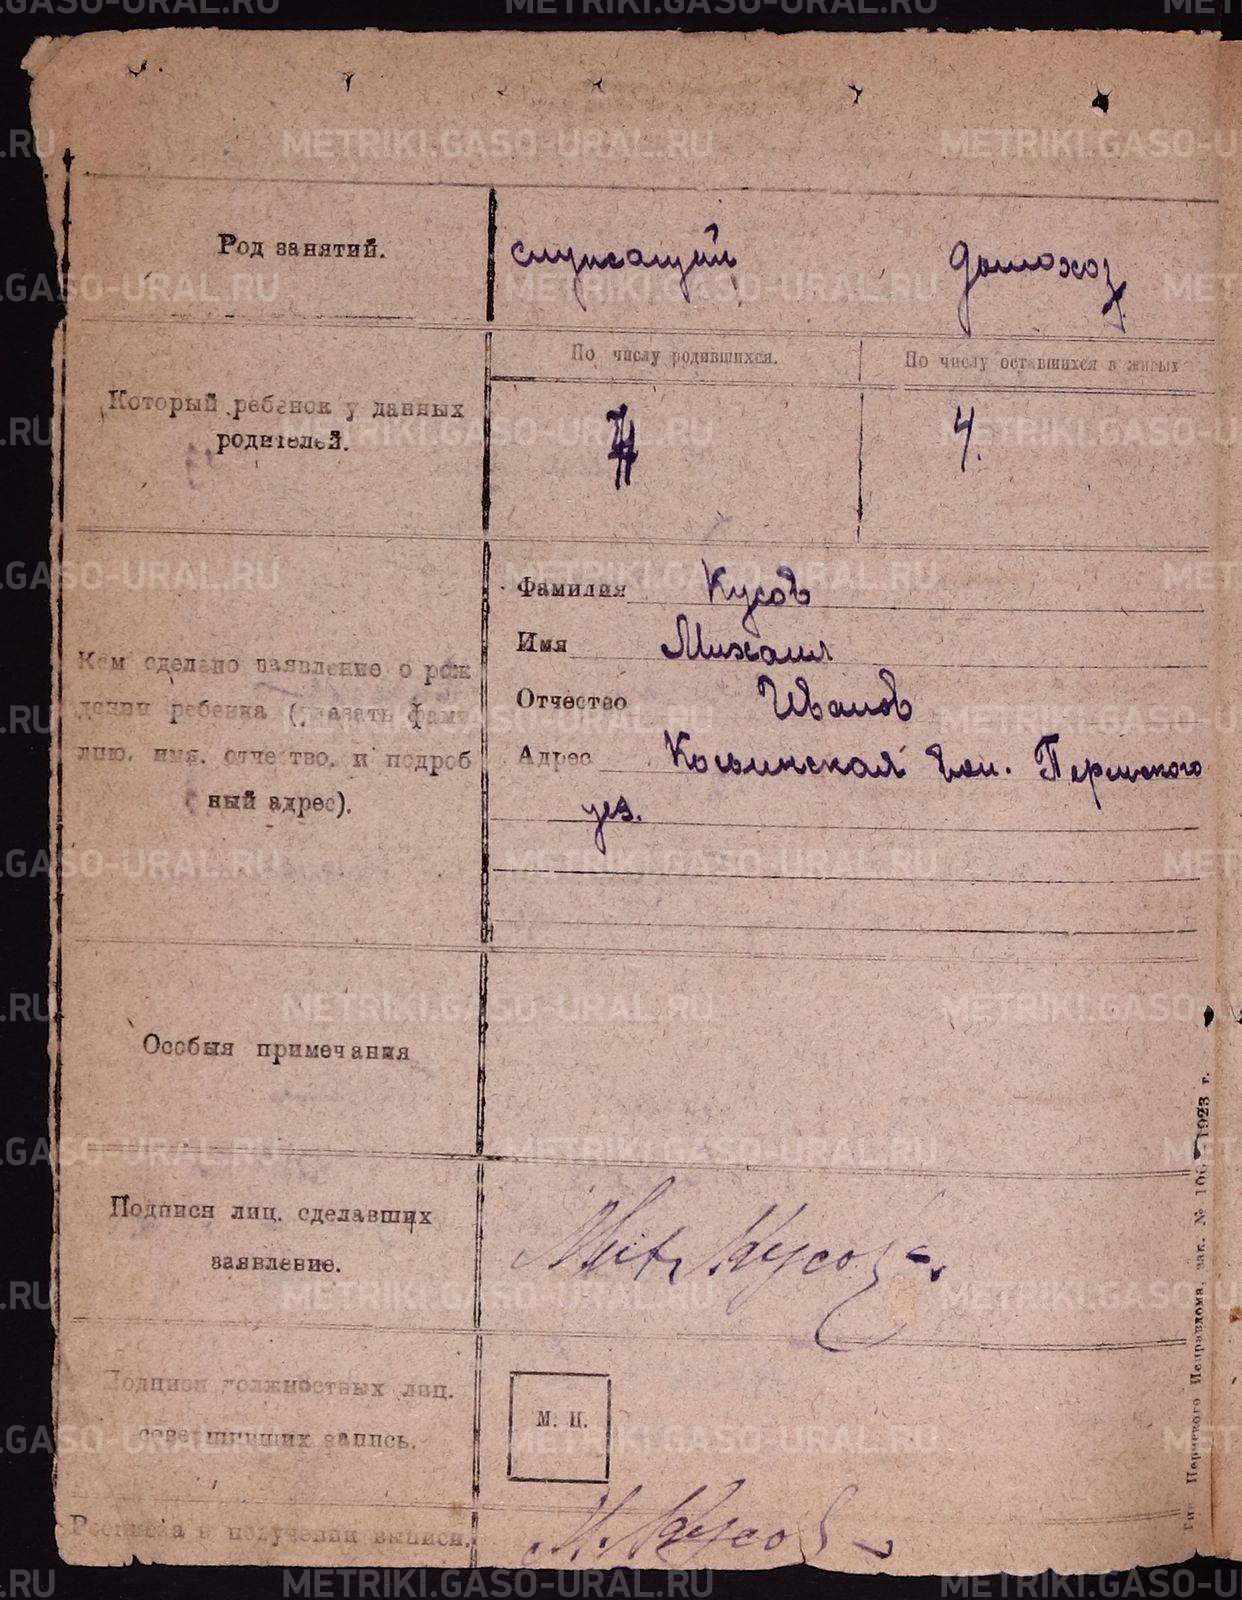 Род занятий.
служащий домохоз.
По числу родившихся. По числу оставшихся в живых
Который ребенок у данных
родителей.
4.
Фамилия Кусов
Имя Михаил
Отчество Иванов
Кем сделано заявление о рож
дении ребенка (указать фами
лию, имя, отчество, и подроб
ный адрес).
Адрес Косьинская Вол. Пермского
уез.
Особыя примечания
Подписи лиц, сделавших
заявление.
Мих. Кусов
Подписи должностных лиц,
совершивших запись.
М. П.
Росписка в получении выписи.
М. Кусов
Пермского Исправдома, зак. № 1923 г.
METRIKI.GASO-URAL.RU